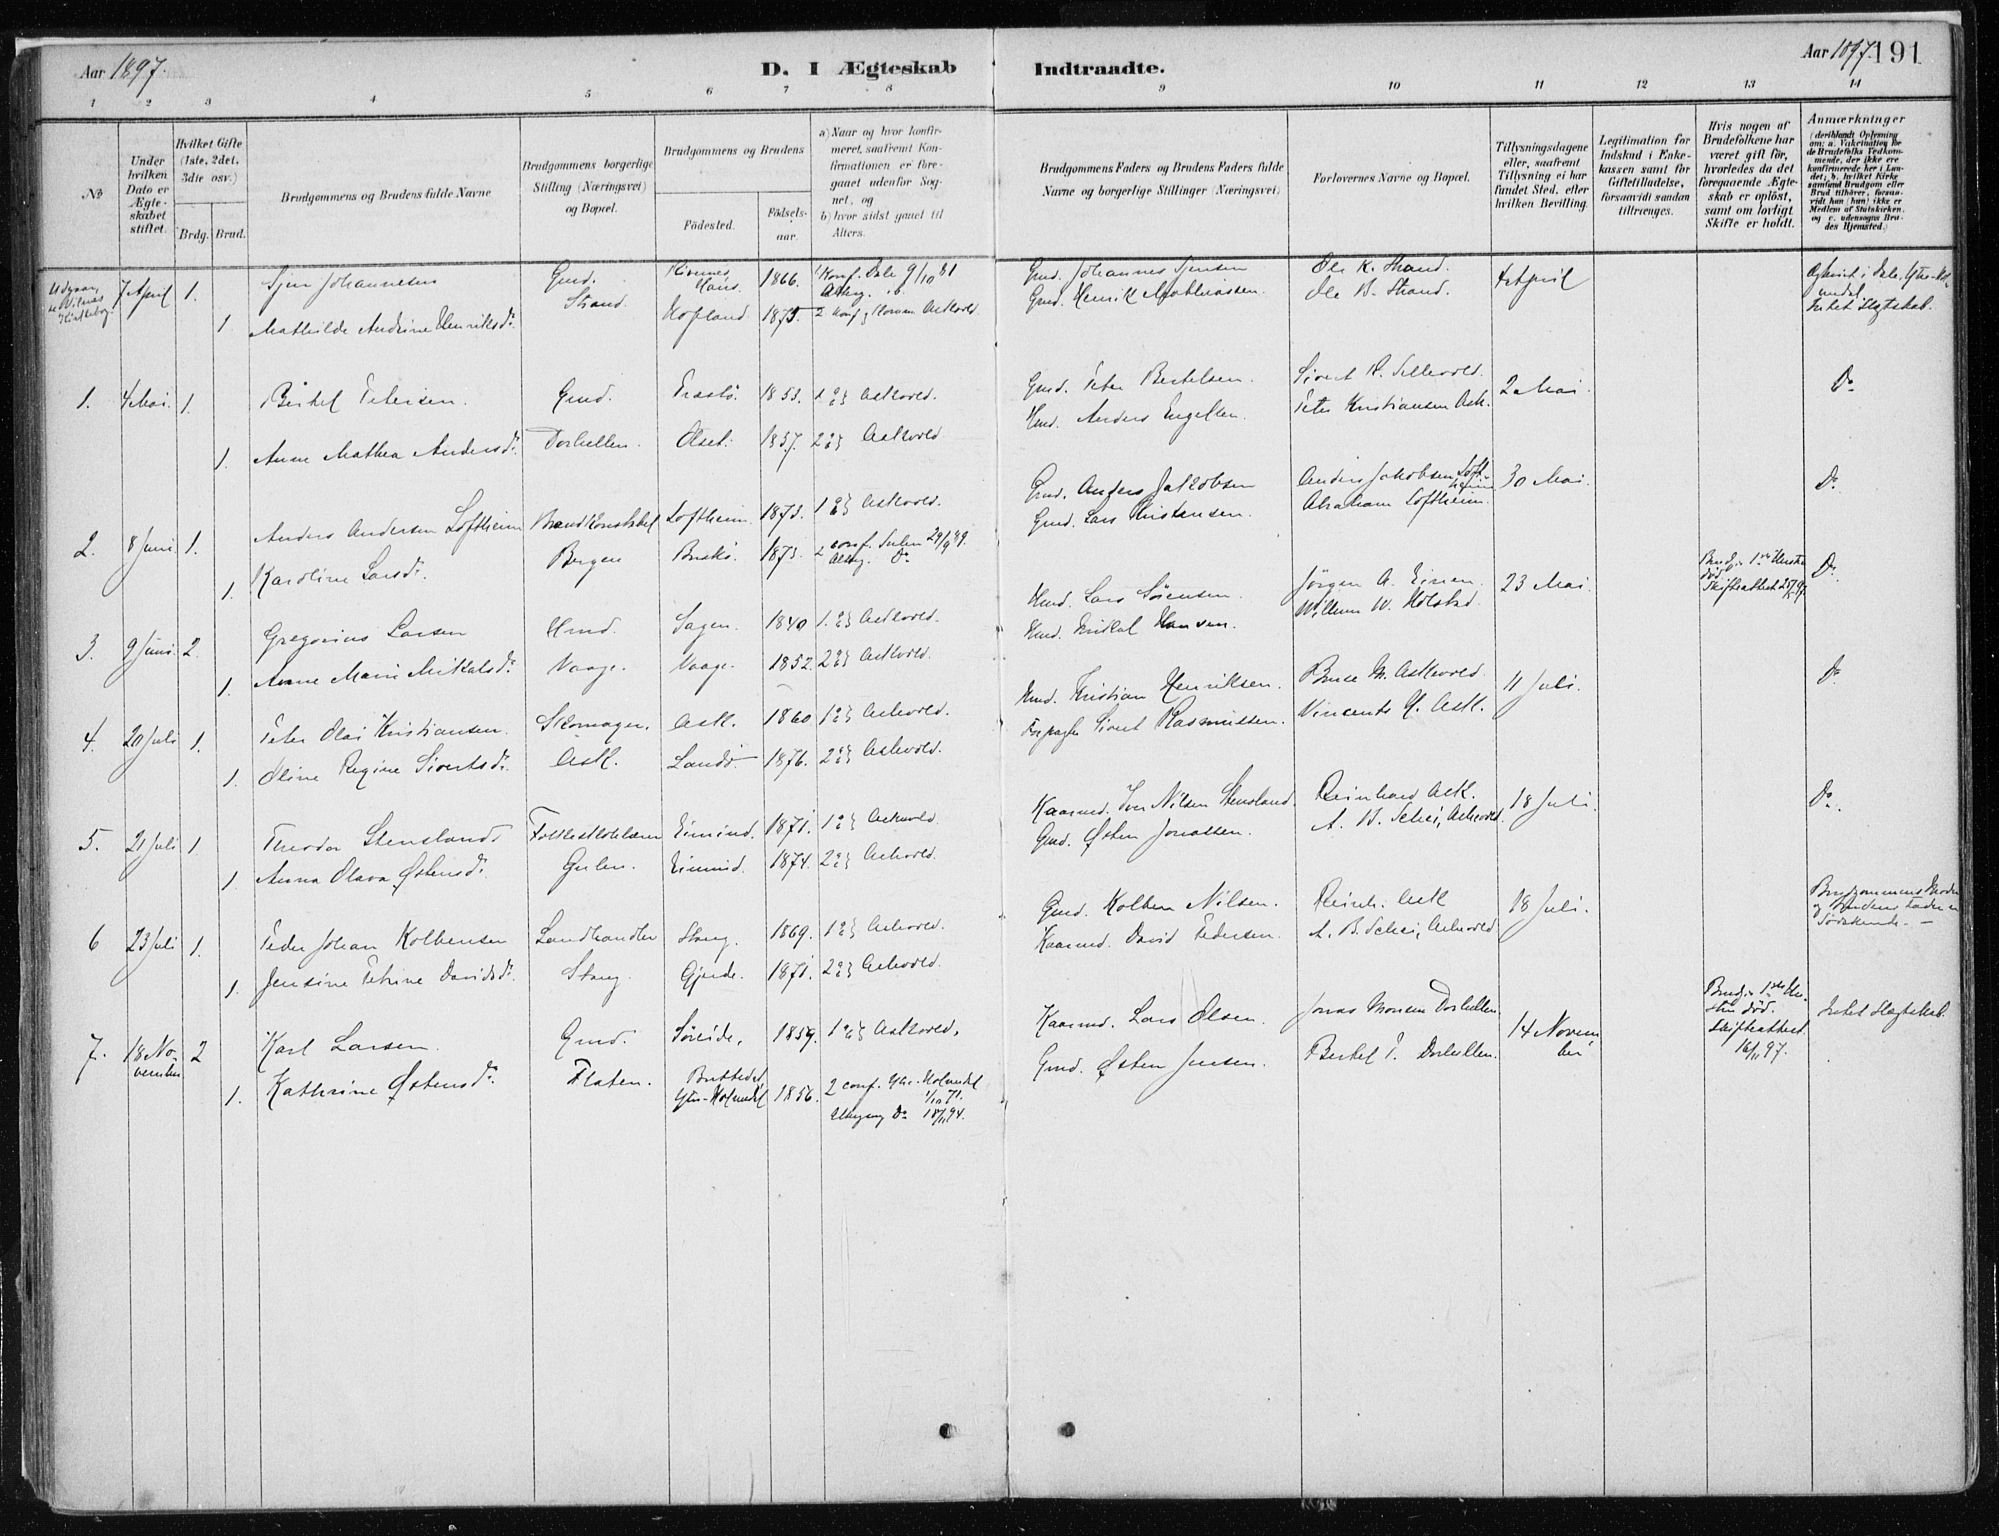 Aar 1897.
D. I Ægteskab
Indtraadte.
Aar 1897. 191
1 2 3 4 5 6 7 8 9 10 11 12 13 14
No
Under hvilken Dato er Ægteskabet stiftet.
Hvilket Gifte (1ste, 2det, 3die osv.)
Brdg. Brud.
Brudgommens og Brudens fulde Navne
Brudgommens borgerlige Stilling (Næringsvei) og Bopæl.
Brudgommens og Brudens
Födested.
Födselsaar.
a) Naar og hvor konfirmeret, saafremt Konfirmationen er foregaaet udenfor Sognet, og
b) hvor sidst gaaet til Alters.
Brudgommens Faders og Brudens Faders fulde Navne og borgerlige Stillinger (Næringsvei)
Forlovernes Navne og Bopæl.
Tillysningsdagene eller, saafremt Tillysning ei har fundet Sted, efter hvilken Bevilling.
Legitimation for Indskud i Enkekassen samt for Giftetilladelse, forsaavidt saadan tiltrænges.
Hvis nogen af Brudefolkene har været gift för, hvorledes da det foregaaende Ægteskab er oplöst, samt om lovligt Skifte er holdt.
Anmærkninger
(deriblandt Oplysning om: a. Vakcination for de Brudefolks Vedkommende, der ikke ere konfirmerede her i Landet; b. hvilket Kirkesamfund Brudgom eller Brud tilhörer, forsaavidt han (hun) ikke er Medlem af Statskirken, og c. udensogns Brudes Hjemsted.)
7 April 1. Johannesen Gmd. 1866. Konf. Dale 9/10 81 Gmd. Johannes Ole K. Strand. 4 April
1. Mathilde Andrine Henriksdr. Strand. Hopland 1875. Askvold Gmd. Henrik Mathiassen Ole B. Strand. Intet Slegtskab.
1. 4 Mai. 1. Bertel Petersen. Gmd. 1853. 1 Askvold. Gmd. Peter Bertelsen. 2 Mai. Do
1. Anne Mathea Andersdr. Dorhellen. Olset. 1857. 2 Askvold Hmd. Anders Engelsen. Peter Kristiansen Ask.
2. 8 Juni 1. Anders Andersen Loftheim Brandkonstabel Loftheim. 1873. 1 Askvold. Gmd. Anders Jakobsen Anders Jakobsen Loftheim 30 Mai. Do
1. Karoline Larsdr. Bergen 1873. 2 conf. Gmd. Lars Kristensen. Abraham Loftheim.
3. 9 Juni. 2. Gregorius Larsen Hmd. Sagen. 1840 1. Askvold. Hmd. Lars Sörensen. Jörgen A. 23 Mai Do
1. Anne Marie Mikalsdr. Vaage. Vaage. 1852. 2 Askvold. Hmd. Mikal Hansen. Willum W. Holstad
4. 20 Juli 1. Peter Olai Kristiansen. Skomager. Ask. 1860 1 Askvold. Hmd. Kristian Henriksen. M. Askvold. 11 Juli. Do
1. Oline Regine Sivertsdr. Ask. Landö 1876. 2 Askvold. Sivert Rasmussen. Ask.
5. 21 Juli 1. Theodor Stensland Gulen. 1871. 1 Askvold Kaarmd. Iver Nilsen Stensland. Reinhard Ask. 18 Juli. Do
1. Anna Olava Østensdr. 1874. 2 Askvold. Gmd. Østen Jonassen. A. B. Schei, Askvold.
6 23 Juli 1. Peder Johan Kolbensen Landhandler Stang. 1869. 1 Askvold. Gmd. Kolben Nilsen. Reinh. Ask 18 Juli. Brudgommens Moder og Brudens Fader er Södskende.
1. Jensine Petrine Davidsdr. Stang Gjerde. 1871. 2 Askvold. Kaarmd. David Pedersen. A. B. Schei, Askvold
7. 18 November 2 Karl Larsen. Gmd. Söreide. 1859. 1 Askvold. Kaarmd. Lars Olsen. Jonas Monsen Dorhellen 14 November Skifteattest 16/11 97. Intet Slegtskab.
1. Kathrine Østensdr. Flaten. Ytre-Holmedal 1856. 2 conf. Ytre-Holmedal 1/10 71. Gmd. Østen Jensen. Bertel P. Dorhellen.